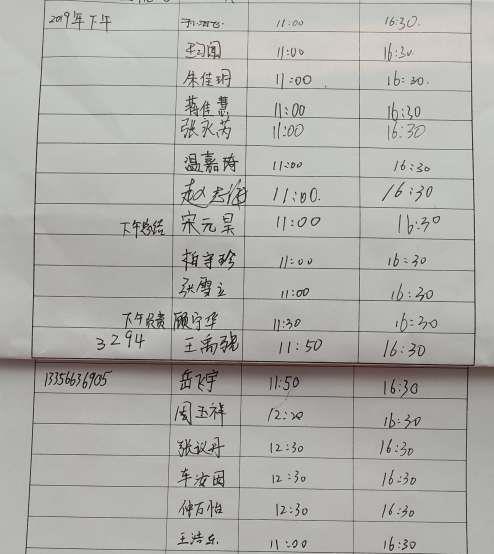 2019年下午 11:00 16:30
11:00 16:30
朱佳玥 11:00 16:30
蒋佳慧 11:00 16:30
张永芮 11:00 16:30
温嘉琦 11:00 16:30
赵 11:00 16:30
下午总结 宋元昊 11:00 16:30
柏守珍 11:00 16:30
张雪立 11:00 16:30
下午 顾宁华 11:30 16:30
3294 王禹 11:50 16:30
13356636905 岳飞宇 11:50 16:30
周玉祥 12:20 16:30
张议丹 12:30 16:30
车 12:30 16:30
仲百怡 12:30 16:30
王浩东 11:00 16:30